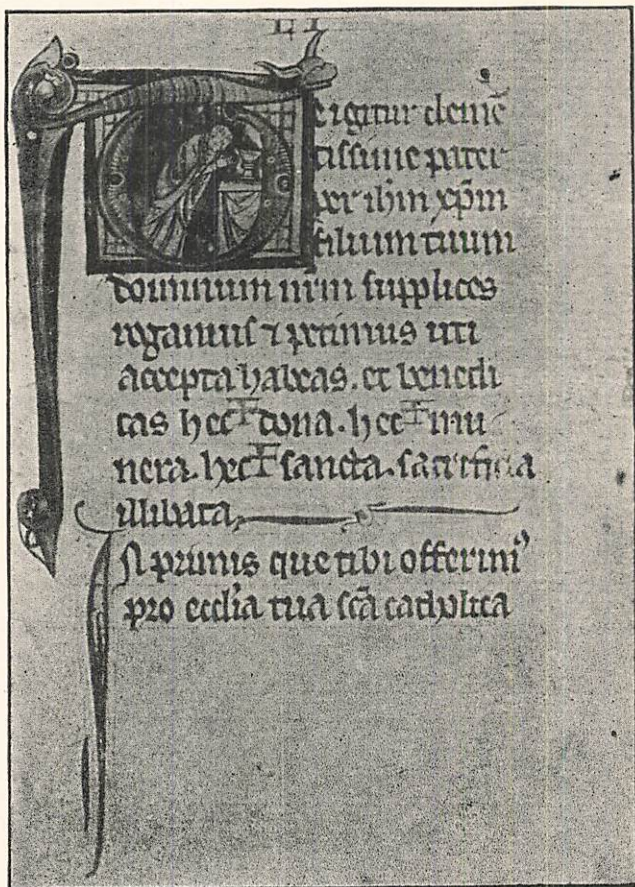 Te igitur clemē
tissime pater
per ihm xp̄m
filium tuum
dominum nrm supplices
rogamus ⁊ petimus uti
accepta habeas. et benedi
cas hec ✝ dona. hec ✝ mu
nera. hec ✝ sancta. sacrificia
illibata,
In primis que tibi offerimꝰ
pro eccl'ia tua sc̄a catholica